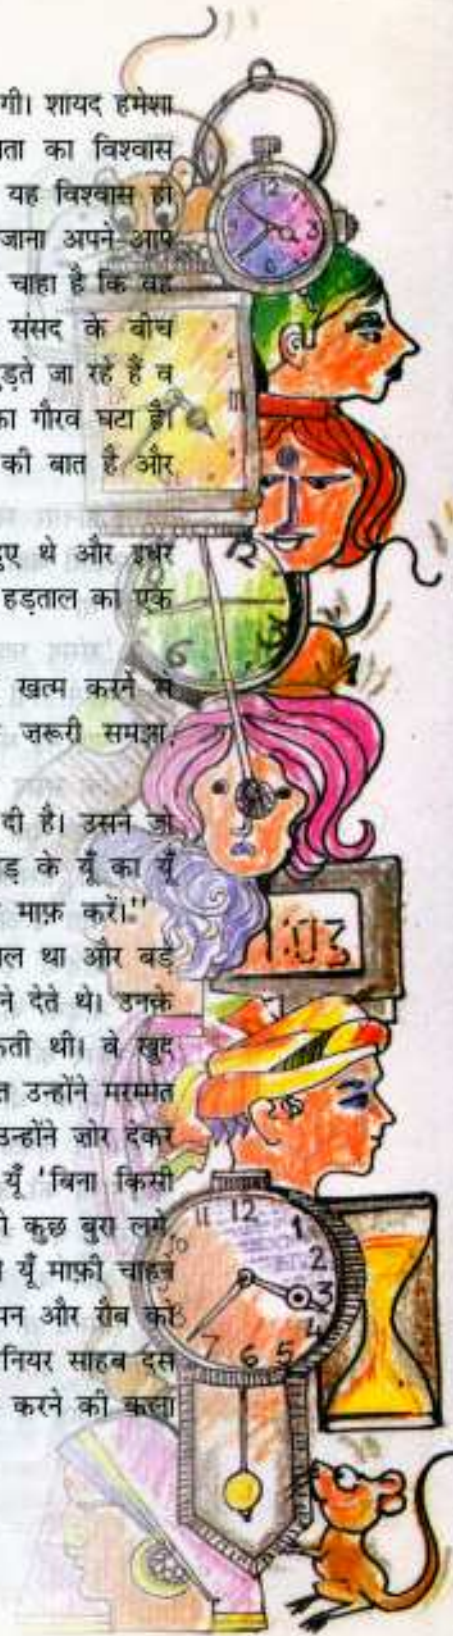 गी। शायद हमेशा
ता का विश्वास
यह विश्वास ही
जाना अपने आप
चाहा है कि वह
संसद के बीच
ड़ते जा रहे हैं व
का गौरव घटा है।
की बात है और
हुए थे और इधर
हड़ताल का एक
खत्म करने से
ज़रूरी समझा,
दी है। उसने जो
ड़ के यूँ का यूँ
माफ़ करें।"
ल था और बड़े
ने देते थे। उनके
कती थी। वे खुद
त उन्होंने मरम्मत
उन्होंने ज़ोर देकर
यूँ 'बिना किसी
ो कुछ बुरा लगे,
ा यूँ माफ़ी चाहने
पन और रौब को
नियर साहब इस
करने की करना
12
3
6
12
6
1:03
11 12 1
2
3
4
5
6
7